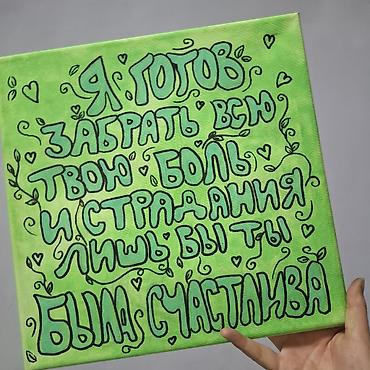 Я ГОТОВ
ЗАБРАТЬ ВСЮ
ТВОЮ БОЛЬ
И СТРАДАНИЯ
ЛИШЬ БЫ ТЫ
БЫЛА СЧАСТЛИВА